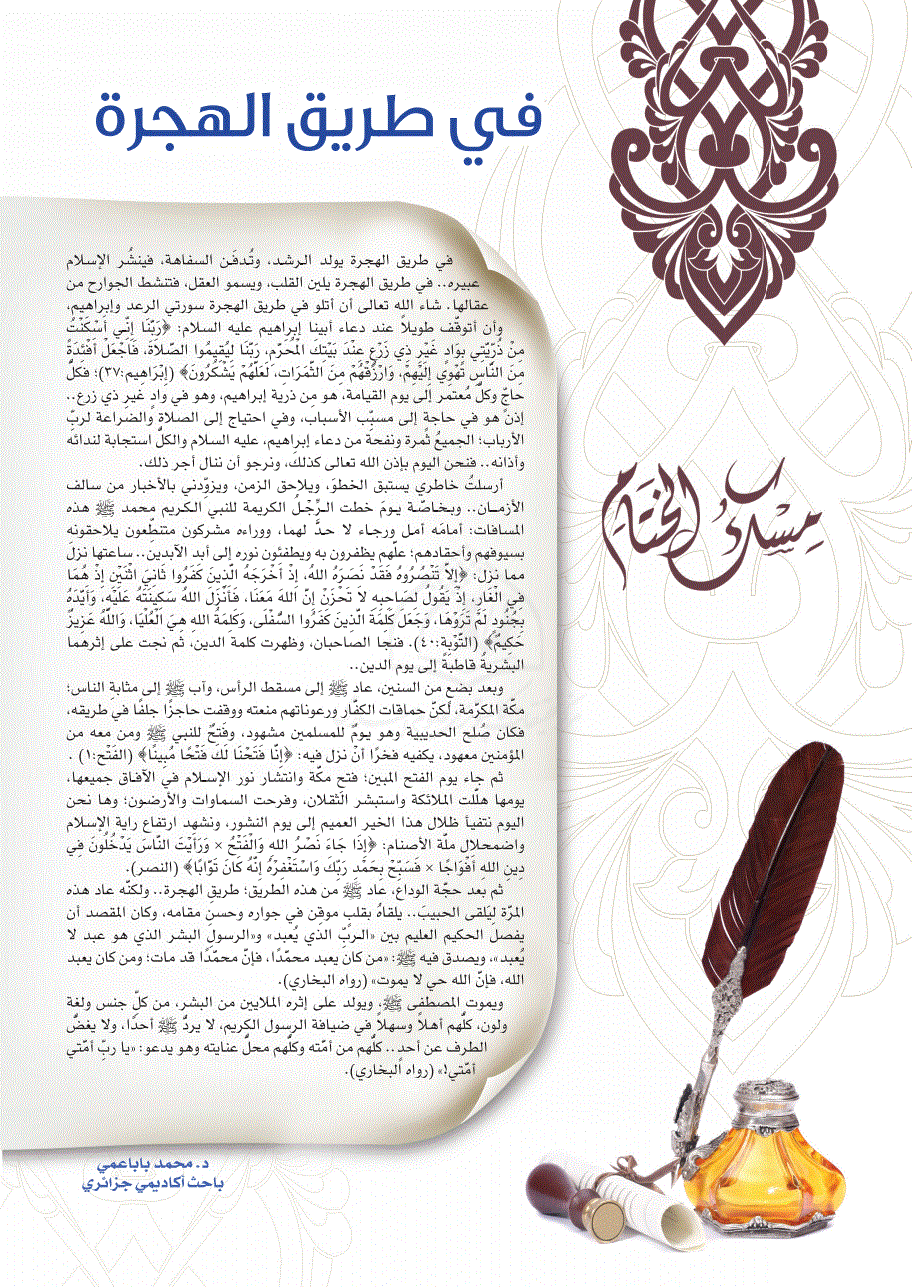 في طريق الهجرة
في طريق الهجرة يولد الرشد، وتُدفَن السفاهة، فينشُر الإسلام
عبيره.. في طريق الهجرة يلين القلب، ويسمو العقل، فتنشط الجوارح من
عقالها. شاء الله تعالى أن أتلو في طريق الهجرة سورتي الرعد وإبراهيم،
وأن أتوقّف طويلاً عند دعاء أبينا إبراهيم عليه السلام: ﴿رَبَّنَا إِنِّي أَسْكَنْتُ
مِنْ ذُرِّيَّتِي بِوَادٍ غَيْرِ ذِي زَرْعٍ عِنْدَ بَيْتِكَ الْمُحَرَّمِ، رَبَّنَا لِيُقِيمُوا الصَّلاَةَ، فَاجْعَلْ أَفْئِدَةً
مِنَ النَّاسِ تَهْوِي إِلَيْهِمْ، وَارْزُقْهُمْ مِنَ الثَّمَرَاتِ، لَعَلَّهُمْ يَشْكُرُونَ﴾ (إِبْرَاهِيم:٣٧)؛ فكلُّ
حاجّ وكلُّ مُعتمر إلى يوم القيامة، هو مِن ذرية إبراهيم، وهو في وادٍ غير ذي زرع..
إذن هو في حاجة إلى مسبِّب الأسباب، وفي احتياج إلى الصلاة والضَراعة لربِّ
الأرباب؛ الجميعُ ثمرة ونفحة من دعاء إبراهيم، عليه السلام والكلُّ استجابة لندائه
وأذانه.. فنحن اليوم بإذن الله تعالى كذلك، ونرجو أن ننال أجر ذلك.
أرسلتُ خاطري يستبق الخطوَ، ويلاحق الزمن، ويزوّدني بالأخبار من سالف
الأزمـان.. وبـخـاصّـة يـومَ خطت الـرِّجْـلُ الكريمة للنبي الكريم محمد ﷺ هذه
المسافات: أمامَه أمل ورجـاء لا حـدَّ لهما، ووراءه مشركون متنطّعون يلاحقونه
بسيوفهم وأحقادهم؛ علّهم يظفرون به ويطفئون نوره إلى أبد الآبدين.. ساعتها نزلَ
مما نزل: ﴿إِلاَّ تَنْصُرُوهُ فَقَدْ نَصَرَهُ اللهُ، إِذْ أَخْرَجَهُ الَّذِينَ كَفَرُوا ثَانِيَ اثْنَيْنِ إِذْ هُمَا
فِي الْغَارِ، إِذْ يَقُولُ لِصَاحِبِهِ لاَ تَحْزَنْ إِنَّ اللهَ مَعَنَا، فَأَنْزَلَ اللهُ سَكِينَتَهُ عَلَيْهِ، وَأَيَّدَهُ
بِجُنُودٍ لَمْ تَرَوْهَا، وَجَعَلَ كَلِمَةَ الَّذِينَ كَفَرُوا السُّفْلَى، وَكَلِمَةُ اللهِ هِيَ الْعُلْيَا، وَاللَّهُ عَزِيزٌ
حَكِيمٌ﴾ (التَّوْبَة:٤٠). فنجا الصاحبان، وظهرت كلمة الدين، ثم نجت على إثرهما
البشريةُ قاطبةً إلى يوم الدين..
وبعد بضع من السنين، عاد ﷺ إلى مسقط الرأس، وآب ﷺ إلى مثابةِ الناس؛
مكّة المكرّمة، لكنّ حماقات الكفّار ورعوناتهم منعته ووقفت حاجزًا جلفًا في طريقه،
فكان صُلح الحديبية وهو يومٌ للمسلمين مشهود، وفَتحٌ للنبي ﷺ ومن معه من
المؤمنين معهود، يكفيه فخرًا أنْ نزل فيه: ﴿إِنَّا فَتَحْنَا لَكَ فَتْحًا مُبِينًا﴾ (الفَتْح:١) .
ثم جاء يوم الفتح المبين؛ فتحِ مكّة وانتشار نور الإسلام في الآفـاق جميعها،
يومها هلّلت الملائكة واستبشر الثقلان، وفرحت السماوات والأرضون؛ وها نحن
اليوم نتفيأ ظلال هذا الخير العميم إلى يوم النشور، ونشهد ارتفاع راية الإسلام
واضمحلال ملّة الأصنام: ﴿إِذَا جَاءَ نَصْرُ اللهِ وَالْفَتْحُ × وَرَأَيْتَ النَّاسَ يَدْخُلُونَ فِي
دِينِ اللهِ أَفْوَاجًا × فَسَبِّحْ بِحَمْدِ رَبِّكَ وَاسْتَغْفِرْهُ إِنَّهُ كَانَ تَوَّابًا﴾ (النصر).
ثم بعد حجّة الوداع، عاد ﷺ من هذه الطريق؛ طريقِ الهجرة.. ولكنّه عاد هذه
المرّة لِيَلقى الحبيبَ.. يلقاهُ بقلبٍ موقنٍ في جواره وحسن مقامه، وكان المقصد أن
يفصلَ الحكيم العليم بين «الـربِّ الذي يُعبد» و«الرسولِ البشر الذي هو عبد لا
يُعبد»، ويصدق فيه ﷺ: «من كان يعبد محمّدًا، فإنّ محمّدًا قد مات؛ ومن كان يعبد
الله، فإنّ الله حي لا يموت» (رواه البخاري).
ويموت المصطفى ﷺ، ويولد على إثره الملايين من البشر، من كلّ جنس ولغة
ولون، كلُّهم أهلاً وسهلاً في ضيافة الرسول الكريم، لا يردُّ ﷺ أحدًا، ولا يغضُّ
الطرف عن أحدٍ.. كلُّهم من أمّته وكلُّهم محلُّ عنايته وهو يدعو: «يا ربِّ أمّتي
أمّتي!» (رواه البخاري).
مِسْكُ الخِتَامِ
د. محمد باباعمي
باحث أكاديمي جزائري